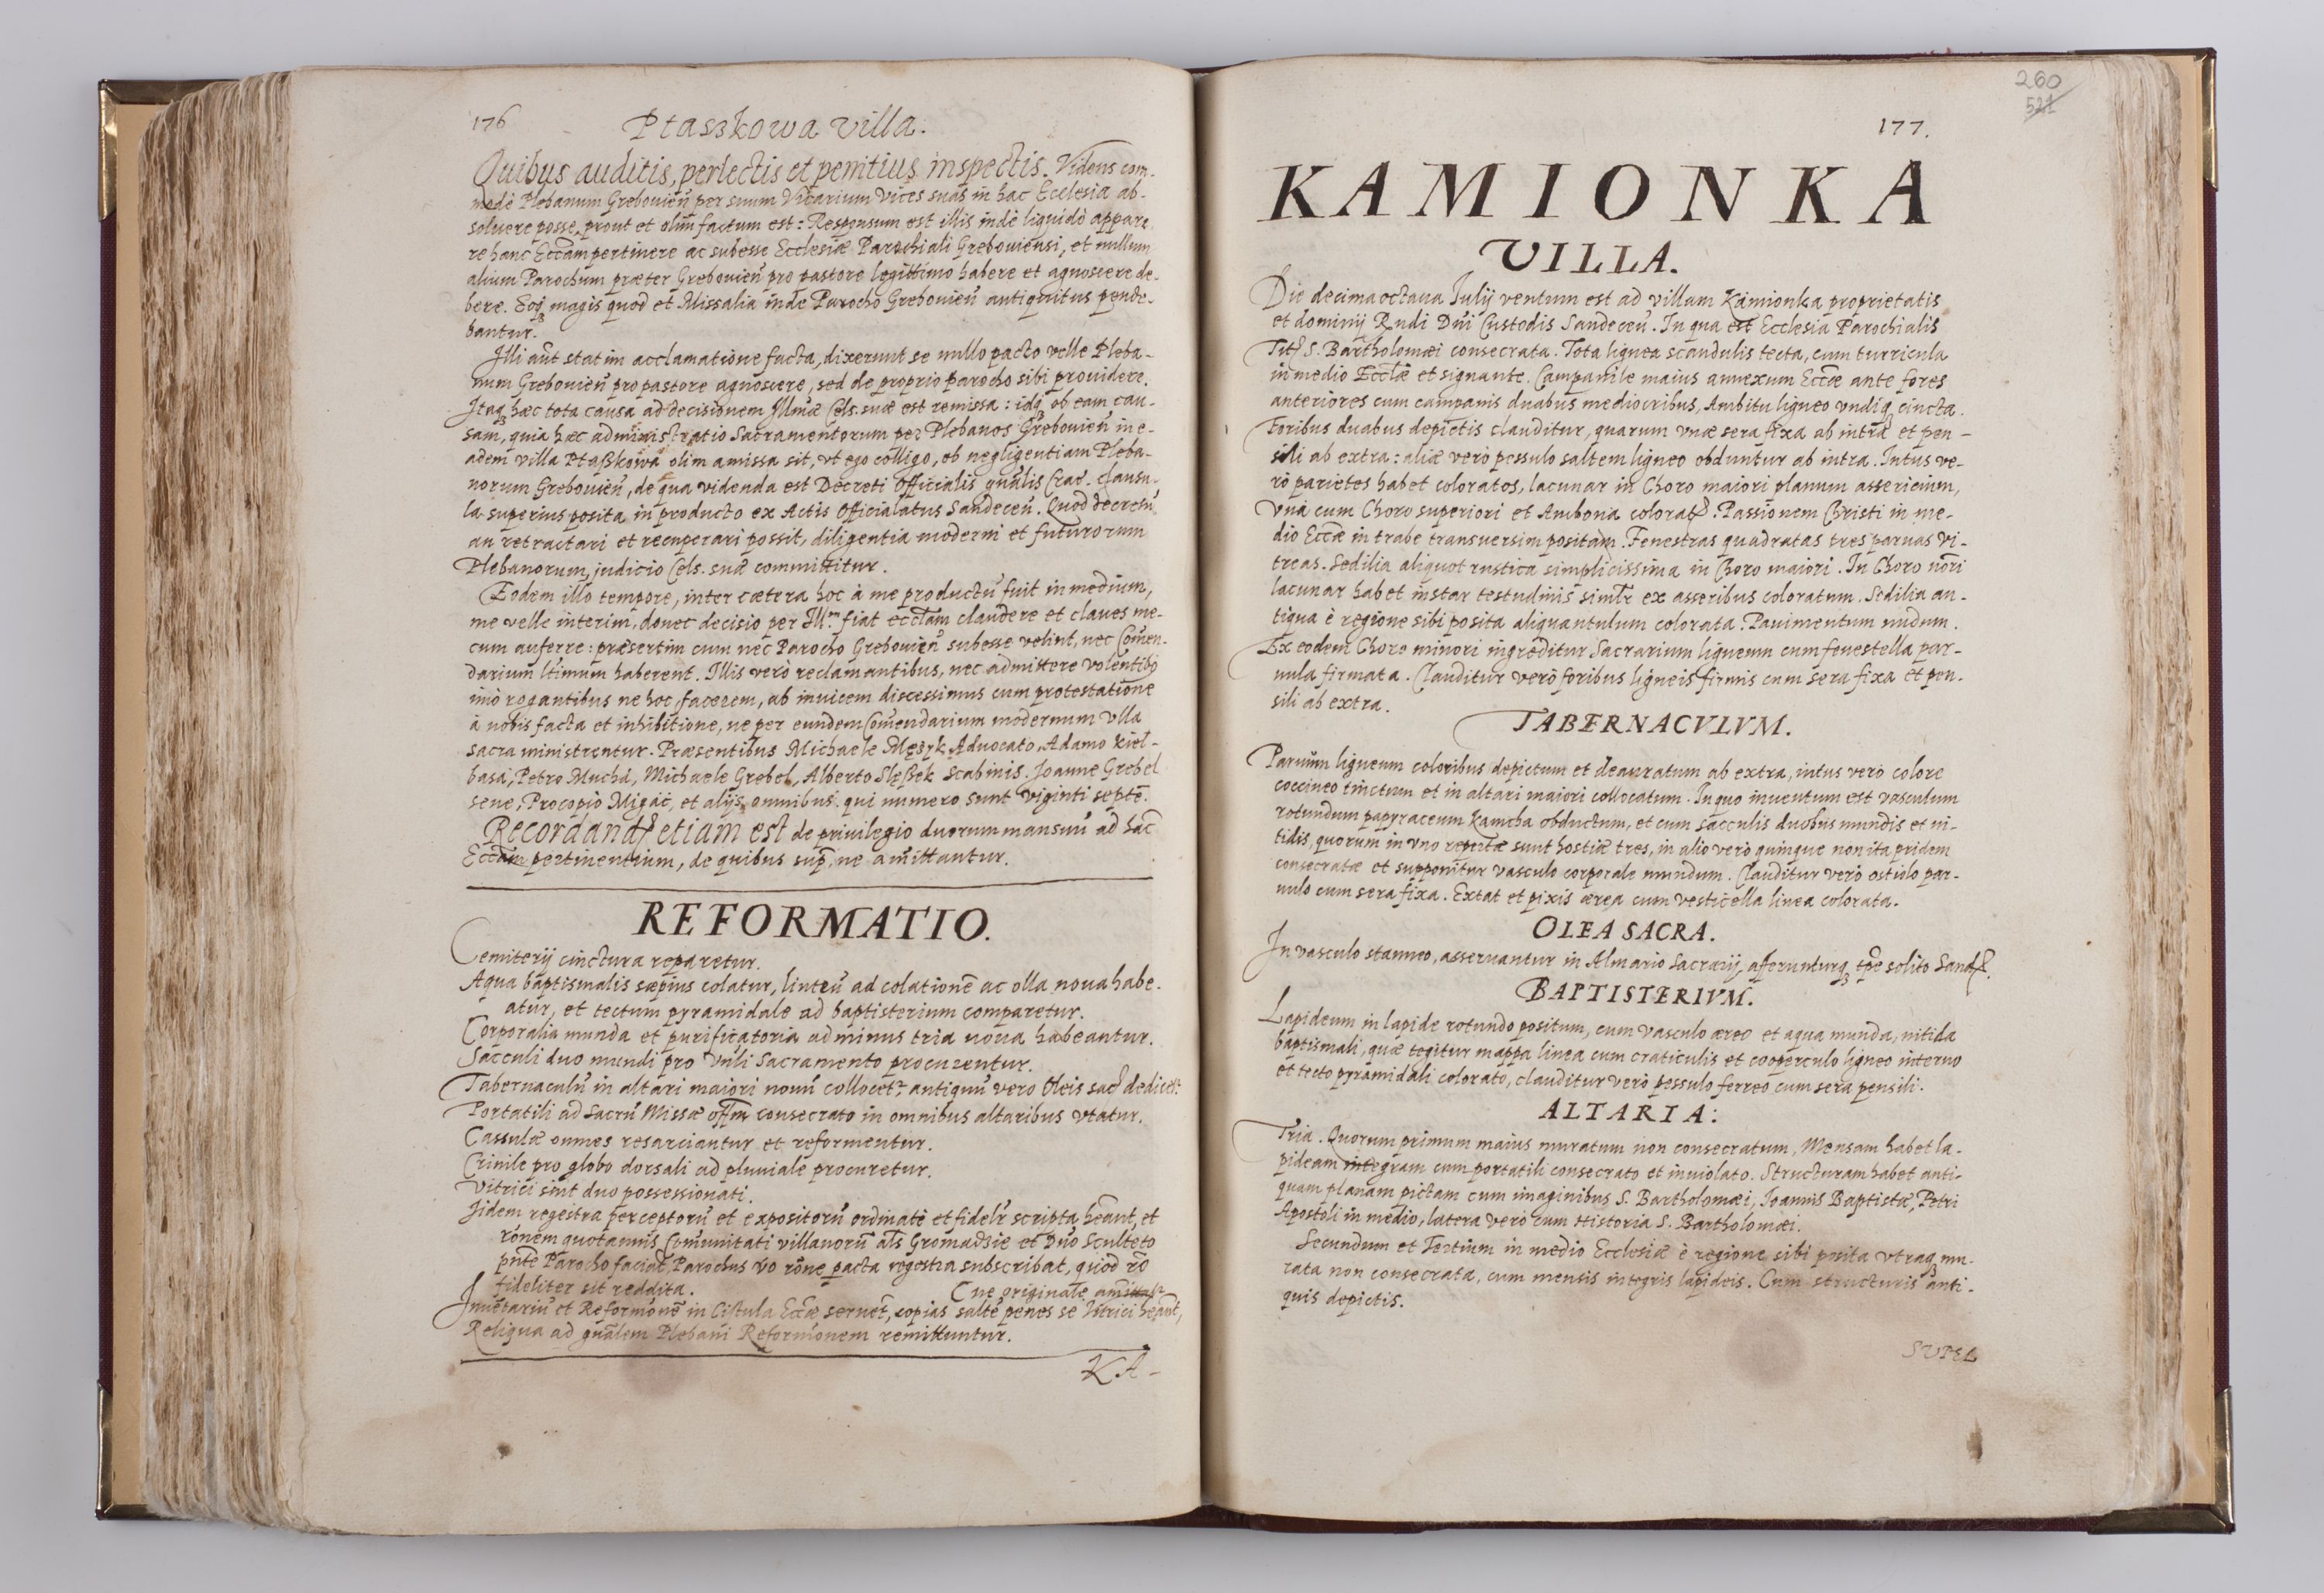 176
Ptasskowa villa.
Quibus auditis, perlectis et penitius inspectis. Videns com-
mode Plebanum Grebouień per suum Vicarium vices suas in hac Ecclesia ab-
soluere posse, prout et olim factum est: Responsum est illis indè liquidò appare-
re hanc Eccãm pertinere ac subesse Ecclesiæ Parochiali Grebouiensi, et nullum
alium Parochum præter Grebouień pro pastore legittimo habere et agnoscere de-
bere. Eoq; magis quod et Missalia inde Parocho Grebouień antiquitus pende-
bantur.
Illi aũt statim acclamatione facta, dixerunt se nullo pacto velle Pleba-
num Grebouień pro pastore agnoscere, sed de proprio parocho sibi prouidere.
Itaq; hæc tota causa ad decisionem Illmæ Cels. suæ est remissa: idq; ob eam cau-
sam, quia hæc administratio Sacramentorum per Plebanos Grebouień in e-
adem villa Ptaßkowa olim amissa sit, vt ego colligo, ob negligentiam Pleba-
norum Grebouień, de qua videnda est Decreti Officialis gñalis Crac. clausu-
la superius posita in producto ex Actis Officialatus Sandeceń. Quod decretũ
an retractari et recuperari possit, diligentia moderni et futurorum
Plebanorum, judicio Cels. suæ committitur.
Eodem illo tempore, inter cætera hoc à me productũ fuit in medium,
me velle interim, donec decisio per Illm fiat ecctam claudere et claues me-
cum auferre: præsertim cum nec Parocho Grebouień subesse velint, nec Comen-
darium ltimum haberent. Illis verò reclamantibus, nec admittere volentibo
imò rogantibus ne hoc facerem, ab inuicem discessimus cum protestatione
à nobis facta et inhibitione, ne per eundem Comendarium modernum vlla
sacra ministrentur. Præsentibus Michaele Męzyk Aduocato, Adamo kiel-
basa, Petro Mucha, Michaele Grebel, Alberto Slęßek Scabinis. Joanne Grebel
sene, Procopio Migac, et alijs omnibus qui numero sunt viginti septẽ.
Recordandũ etiam est de priuilegio duorum mansuũ ad hãc
Eccãm pertinentium, de quibus sup, ne amittantur.
REFORMATIO.
Cemiterij cinctura reparetur.
Aqua baptismalis sæpius colatur, linteũ ad colationẽ ac olla noua habe-
atur, et tectum pyramidale ad baptisterium comparetur.
Corporalia munda et purificatoria ad minus tria noua habeantur.
Sacculi duo mundi pro Vnli Sacramento procurentur.
Tabernaculũ in altari maiori nouũ collocet, antiquũ vero Oleis sac dedicet.
Portatili ad Sacrũ Missæ offm consecrato in omnibus altaribus vtatur.
Cassulæ omnes resarciantur et reformentur.
Crinile pro globo dorsali ad pluuiale procuretur.
Vitrici sint duo possessionati.
Iidem regestra perceptorũ et expositorũ ordinatè et fidelr scripta heãnt, et
rõnem quotannis Comunitati villanorũ als Gromadzie et Dño Sculteto
pñte Parocho faciãt, Parochus vo rõne pacta regestra subscribat, quod rõ
fideliter sit reddita.
ne originale amittat
Inuẽtariũ et Reformõnẽ in Cistula Eccæ seruẽt, copias saltẽ penes se Vitrici heãnt,
Reliqua ad gñalem Plebani Reformõnem remittuntur.
KA-
260
521
177.
KAMIONKA
VILLA.
Die decima octaua Iulij ventum est ad villam Kamionka proprietatis
et dominij Rndi Dñi Custodis Sandeceń. In qua est Ecclesia Parochialis
Tit. S. Bartholomæi consecrata. Tota lignea scandulis tecta, cum turricula
in medio Ecclæ et signante. Campanile maius annexum Eccæ ante fores
anteriores cum campanis duabus mediocribus, Ambitu ligneo vndiq cincta.
Foribus duabus depictis clauditur, quarum vnæ sera fixa ab intra et pen-
sili ab extra: aliæ verò pessulo saltem ligneo obduntur ab intra. Intus ve-
rò parietes habet coloratos, lacunar in Choro maiori planum assericium,
vnà cum Choro superiori et Ambona colorat. Passionem Christi in me-
dio Eccæ in trabe transuersim positam. Fenestras quadratas tres paruas vi-
treas. Sedilia aliquot rustica simplicissima in Choro maiori. In Choro nõri
lacunar habet instar testudinis simlr ex asseribus coloratum. Sedilia an-
tiqua è regione sibi posita aliquantulum colorata. Pauimentum nudum.
Ex eodem Choro minori ingreditur Sacrarium ligneum cum fenestella par-
uula firmata. Clauditur verò foribus ligneis firmis cum sera fixa et pen-
sili ab extra.
TABERNACVLVM.
Paruum ligneum coloribus depictum et deauratum ab extra, intus verò colore
coccineo tinctum et in altari maiori collocatum. In quo inuentum est vasculum
rotundum papyraceum Kamcha obductum, et cum sacculis duobus mundis et ni-
tidis, quorum in vno repertæ sunt hostiæ tres, in alio verò quinque non ita pridem
consecratæ et supponitur vasculo corporale mundum. Clauditur verò ostiolo par-
uulo cum sera fixa. Extat et pixis ærea cum vesticella linea colorata.
OLEA SACRA.
In vasculo stanneo, asseruantur in Almario Sacrarij, afferunturq; tpẽ solito Sand.
BAPTISTERIVM.
Lapideum in lapide rotundo positum, cum vasculo æreo et aqua munda, nitida
baptismali, quæ tegitur mappa linea cum craticulis et cooperculo ligneo interno
et tecto pyramidali colorato, clauditur verò pessulo ferreo cum sera pensili.
ALTARIA:
Tria. Quorum primum maius muratum non consecratum, Mensam habet la-
pideam integram cum portatili consecrato et inuiolato. Structuram habet anti-
quam planam pictam cum imaginibus S. Bartholomæi, Ioannis Baptistæ, Petri
Apostoli in medio, latera verò cum Historia S. Bartholomæi.
Secundum et Tertium in medio Ecclesiæ è regione sibi posita vtraq; mu-
rata non consecrata, cum mensis integris lapideis. Cum structuris anti-
quis depictis.
SUPEL